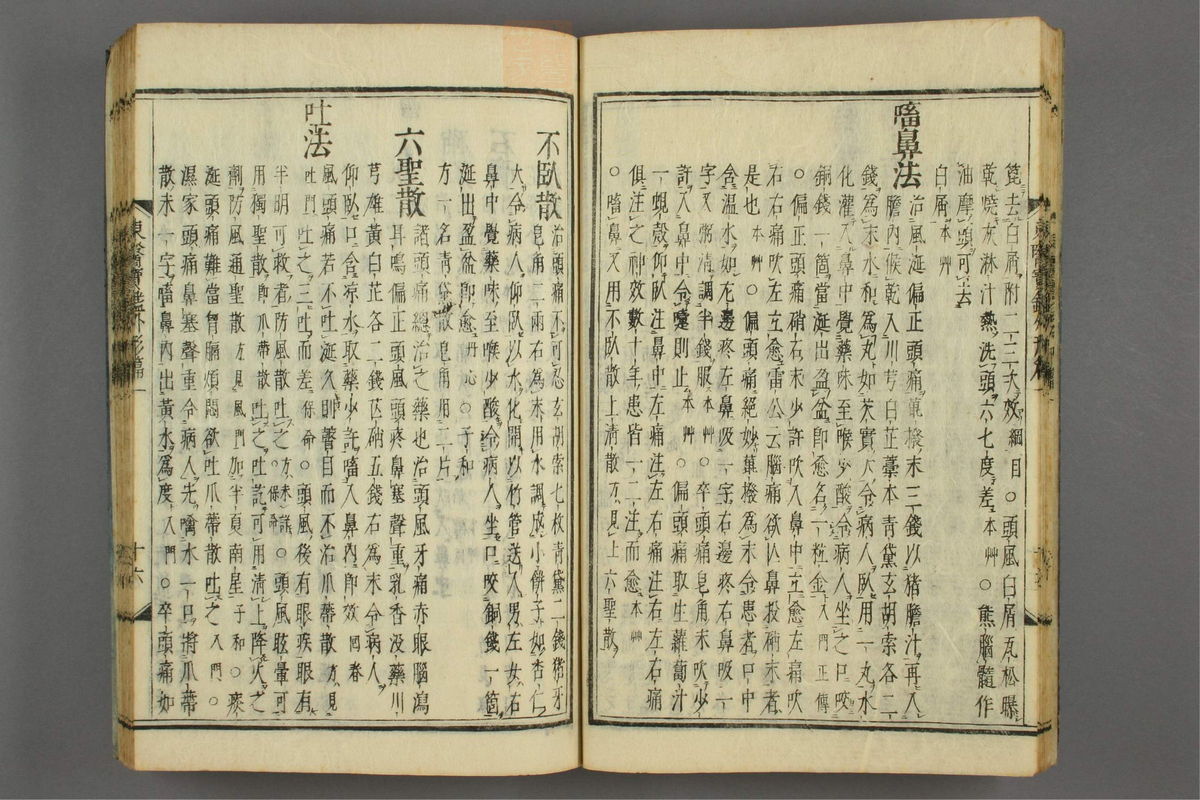 篦去白屑附二三大效綱目○頭風白屑瓦松曝
乾燒灰淋汁熱洗頭六七度差本艸○熊腦髓作
油摩頭可去
白屑本艸
嗃鼻法
治風涎偏正頭痛蓽撥末三錢以猪膽汁再入
膽內候乾入川芎白芷藁本青黛玄胡索各二
錢爲末水和爲丸如芡實大令病人臥用一丸水
化灌入鼻中覺藥味至喉少酸令病人坐之口咬
銅錢一箇當涎出盈盆卽愈名一粒金入門正傳
○偏正頭痛硝石末少許吹入鼻中立愈左痛吹
右右痛吹左左愈雷公云腦痛欲以鼻投硝末者
是也本艸○偏頭痛絕妙蓽撥爲末令患者口中
含溫水如左邊疼左鼻吸一字右邊疼右鼻吸一
字又粥淸調半錢服本艸○卒頭痛皂角末吹少
許入鼻中令嚔則止本艸○偏頭痛取生蘿蔔汁
一蜆殼仰臥注鼻中左痛注左右痛注右左右痛
俱注之神效數十年患皆一二注而愈本艸
○嗃鼻又用不臥散上淸散方見上六聖散
不臥散
治頭痛不可忍玄胡索七枚青黛二錢猪牙
皂角二兩右爲末用水調成小餠子如杏仁
大令病人仰臥以水化開以竹管送入男左女右
鼻中覺藥味至喉少酸令病人坐口咬銅錢一箇
涎出盈盆卽愈丹心○子和
方一名靑黛散皂角用二片
六聖散
諸頭痛總治之藥也治頭風牙痛赤眼腦瀉
耳鳴偏正頭風頭疼鼻塞聲重乳香沒藥川
芎雄黃白芷各二錢芒硝五錢右爲末令病人
仰臥口含涼水取藥少許嗃入鼻內卽效回春
吐法
風頭痛若不吐涎久則瞽目而不治瓜蔕散方見
吐門吐之三吐而差保命○頭風後有眼疾眼有
半明可救者防風散吐之方未詳保命○頭風眩暈可
用獨聖散卽瓜蔕散吐之吐訖可用淸上降火之
劑防風通聖散方見風門加半夏南星子和○痰
涎頭痛難當胸煩悶欲吐瓜蔕散吐之入門○
濕家頭痛鼻塞聲重令病人先噙水一口將瓜蔕
散末一字嗃鼻內出黃水爲度入門○卒頭痛如
東醫寶鑑外形篇一
十六